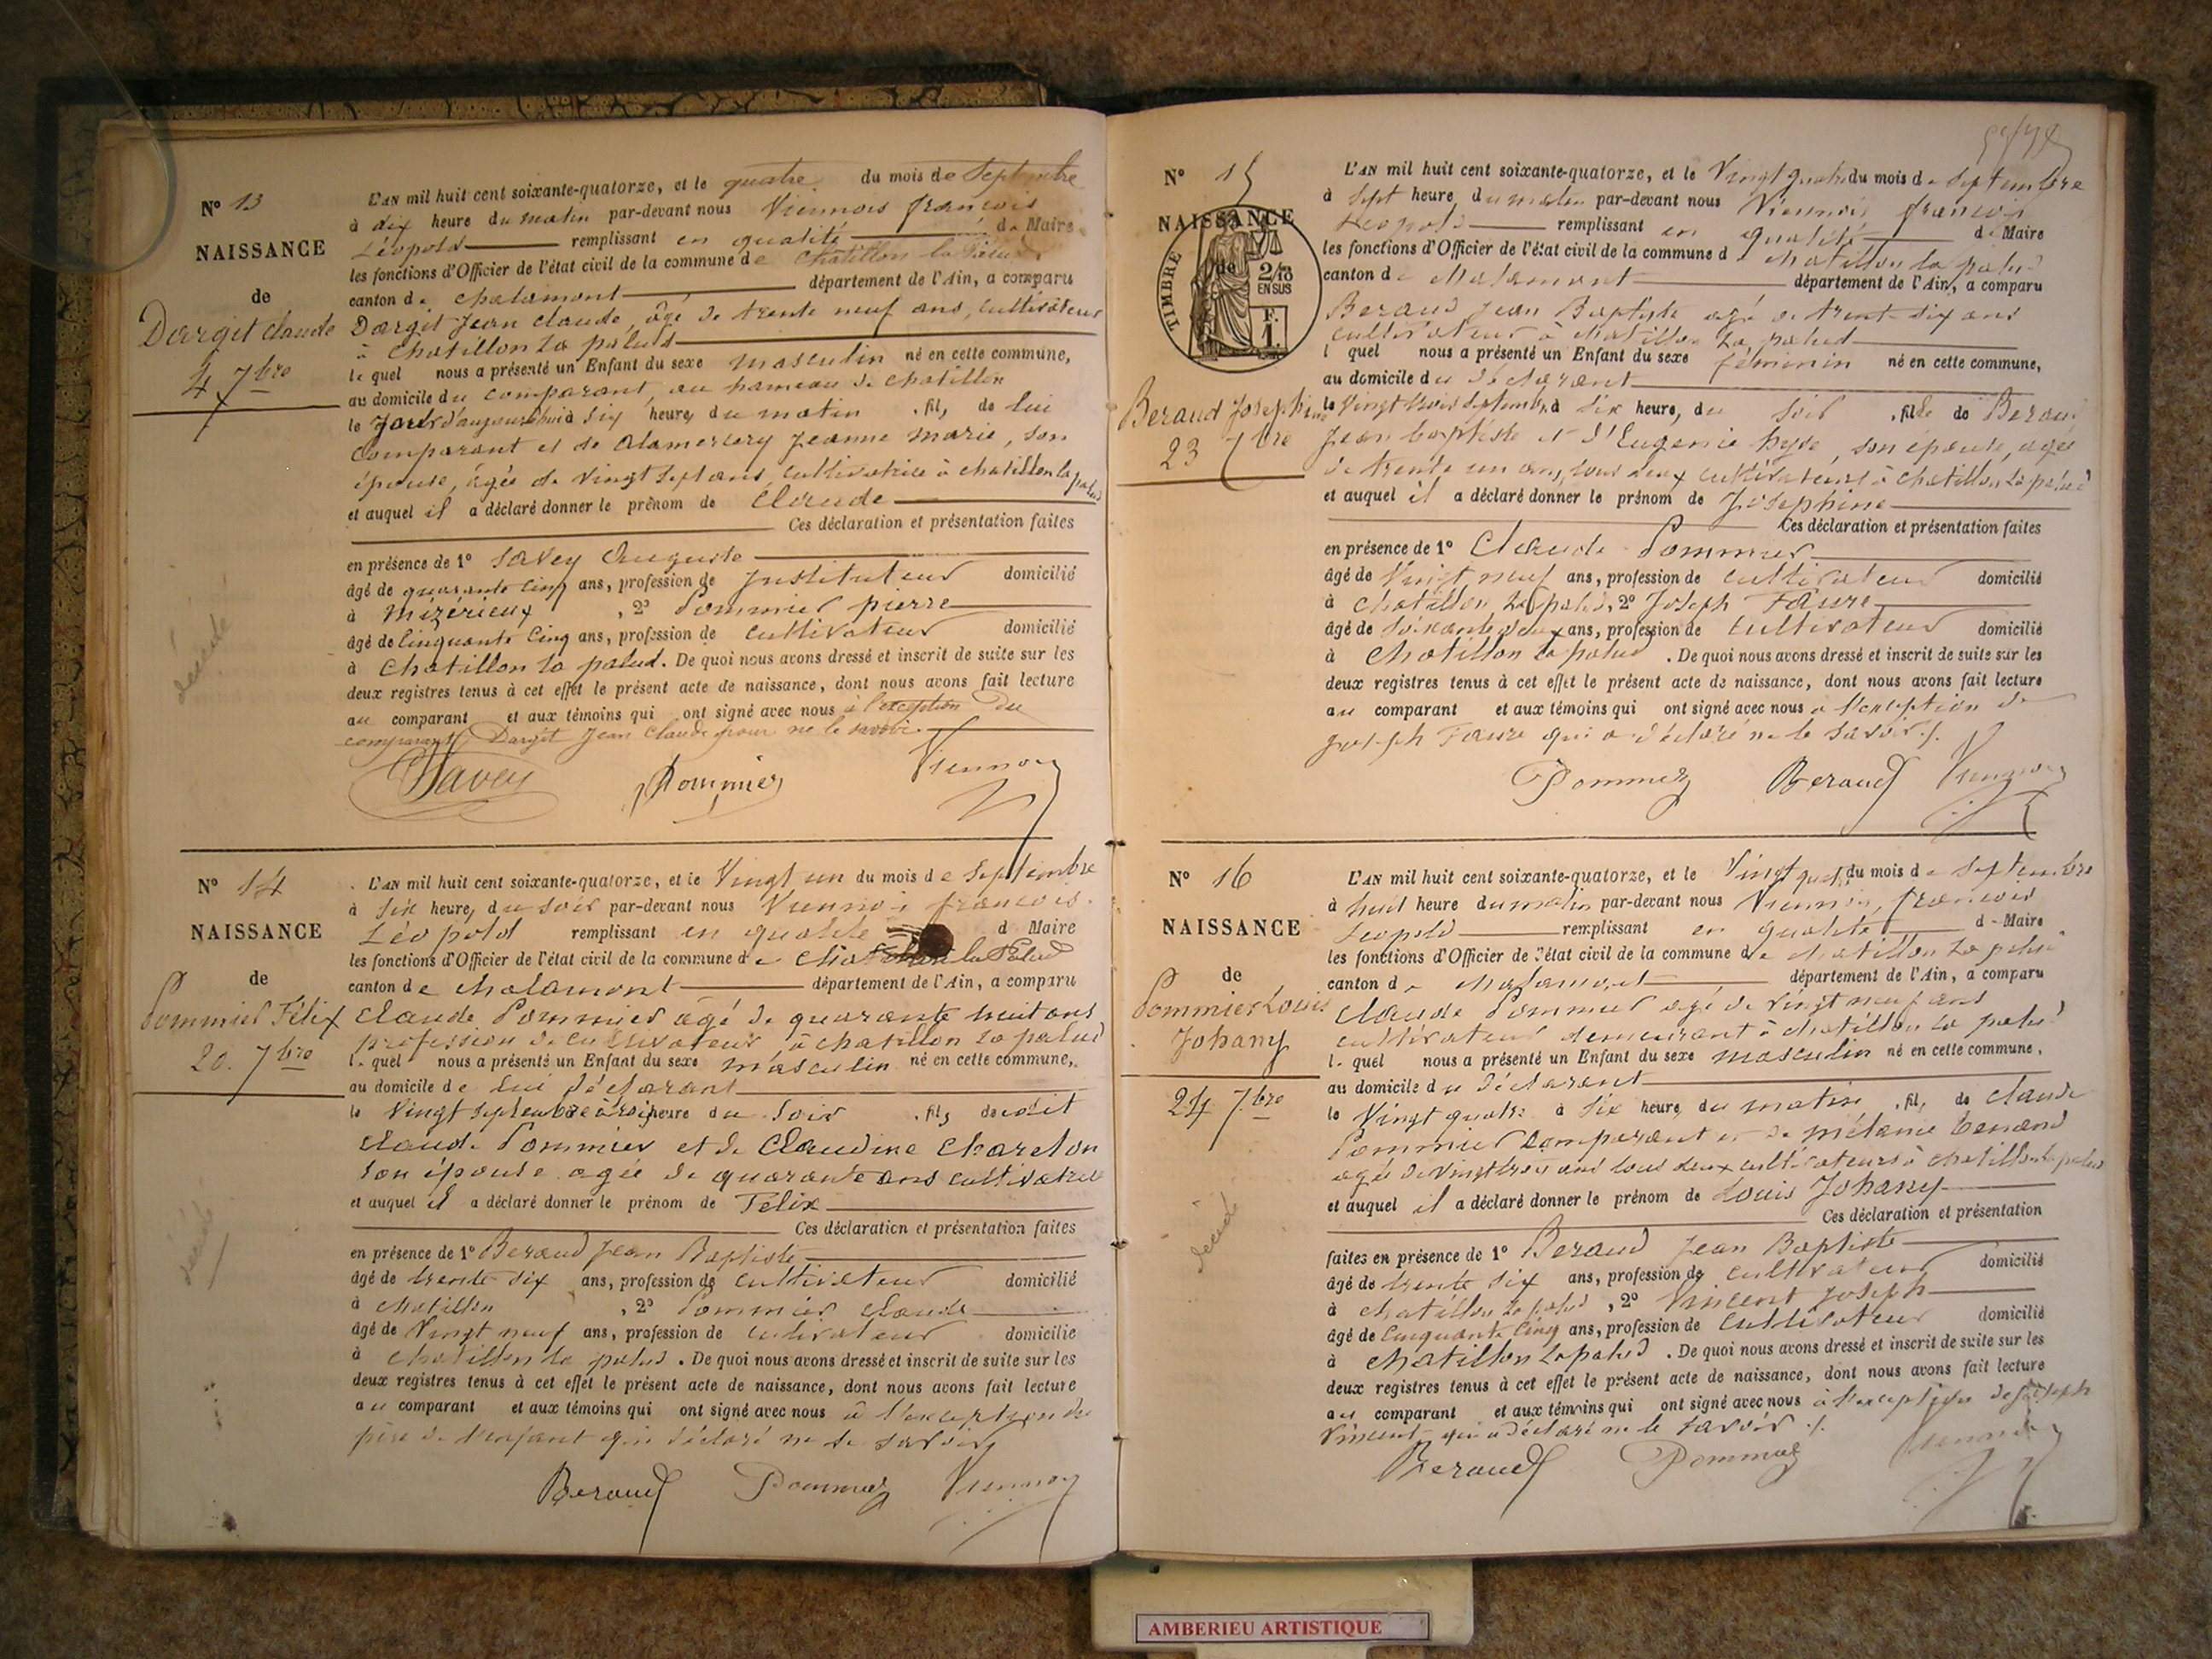 N° 13
NAISSANCE
de
Dargit Claude
4 7bre
décédé
L'AN mil huit cent soixante-quatorze, et le quatre du mois de Septembre
à dix heure du matin par-devant nous Viennois françois
Léopold remplissant en qualité de Maire
les fonctions d'Officier de l'état civil de la commune de Chatillon la Palud
canton de Chalamont département de l'Ain, a comparu
Dargit Jean Claude, âgé de trente neuf ans, cultivateur
à Chatillon la palud
lequel nous a présenté un Enfant du sexe masculin né en cette commune,
au domicile du comparant, au hameau de chatillon
le Jour d'aujourd'hui à six heure, du matin , fils de lui
Comparant et de Alamercery Jeanne marie, son
épouse, âgée de vingt sept ans, cultivatrice à chatillon la palud
et auquel il a déclaré donner le prénom de Claude
Ces déclaration et présentation faites
en présence de 1° Savey Auguste
âgé de quarante cinq ans, profession de Instituteur domicilié
à Mizérieux , 2° Pommier pierre
âgé de cinquante cinq ans, profession de cultivateur domicilié
à Chatillon la palud. De quoi nous avons dressé et inscrit de suite sur les
deux registres tenus à cet effet le présent acte de naissance, dont nous avons fait lecture
au comparant et aux témoins qui ont signé avec nous à l'exception du
comparant Dargit Jean Claude pour ne le savoir.
Savey Pommier Viennois
N° 14
NAISSANCE
de
Pommier Félix
20. 7bre
décédé
L'AN mil huit cent soixante-quatorze, et le Vingt un du mois de Septembre
à six heure, du soir par-devant nous Viennois françois
Léopold remplissant en qualité d Maire
les fonctions d'Officier de l'état civil de la commune de Chatillon la Palud
canton de chalamont département de l'Ain, a comparu
Claude Pommier agé de quarante huit ans
profession de cultivateur à chatillon la palud
l. quel nous a présenté un Enfant du sexe masculin né en cette commune,
au domicile de lui déclarant
le Vingt septembre à heure du Soir , fils de dit
Claude Pommier et de Claudine Chareton
son épouse agée de quarante ans cultivatrice
et auquel il a déclaré donner le prénom de Félix
Ces déclaration et présentation faites
en présence de 1° Beraud Jean Baptiste
âgé de trente six ans, profession de cultivateur domicilié
à chatillon , 2° Pommier Claude
âgé de Vingt neuf ans, profession de cultivateur domicilié
à chatillon la palud. De quoi nous avons dressé et inscrit de suite sur les
deux registres tenus à cet effet le présent acte de naissance, dont nous avons fait lecture
au comparant et aux témoins qui ont signé avec nous à l'exception du
père de l'enfant qui déclaré ne le savoir
Beraud Pommier Viennois
N° 15
NAISSANCE
TIMBRE
de
2/10
EN SUS
F.
1.
Beraud Josephine
23 7bre
L'AN mil huit cent soixante-quatorze, et le Vingt quatre du mois de Septembre
à sept heure du matin par-devant nous Viennois françois
Leopold remplissant en qualité de Maire
les fonctions d'Officier de l'état civil de la commune d chatillon la palud
canton de chalamont département de l'Ain, a comparu
Beraud Jean Baptiste agé de trente six ans
cultivateur à chatillon la palud
l quel nous a présenté un Enfant du sexe féminin né en cette commune,
au domicile du déclarant
le vingt trois septembre à six heure, du soir , fille de Beraud
Jean baptiste et d'Eugenie son épouse, agée
de trente un ans, tous deux cultivateurs à chatillon la palud
et auquel il a déclaré donner le prénom de Josephine
Ces déclaration et présentation faites
en présence de 1° Claude Pommier
âgé de Vingt neuf ans, profession de cultivateur domicilié
à chatillon la palud, 2° Joseph Faure
âgé de soixante deux ans, profession de cultivateur domicilié
à Chatillon la palud . De quoi nous avons dressé et inscrit de suite sur les
deux registres tenus à cet effet le présent acte de naissance, dont nous avons fait lecture
au comparant et aux témoins qui ont signé avec nous à l'exception de
Joseph Faure qui a déclaré ne le savoir ./.
Pommier Beraud Viennois
N° 16
NAISSANCE
de
Pommier Louis
Johany
24 7.bre
décédé
L'AN mil huit cent soixante-quatorze, et le Vingt quatre du mois de septembre
à huit heure du matin par-devant nous Viennois, françois
Leopold remplissant en qualité de Maire
les fonctions d'Officier de l'état civil de la commune de chatillon la palud
canton de chalamont département de l'Ain, a comparu
Claude Pommier agé de vingt neuf ans
cultivateur demeurant à chatillon la palud
l. quel nous a présenté un Enfant du sexe masculin né en cette commune,
au domicile du déclarant
le Vingt quatre à six heure, du matin , fils de Claude
Pommier comparant et de mélanie
agée de vingt trois ans tous deux cultivateurs à chatillon la palud
et auquel il a déclaré donner le prénom de Louis Johany
Ces déclaration et présentation
faites en présence de 1° Beraud Jean Baptiste
âgé de trente six ans, profession de cultivateur domicilié
à chatillon la palud , 2° Vincent Joseph
âgé de cinquante cinq ans, profession de cultivateur domicilié
à chatillon la palud . De quoi nous avons dressé et inscrit de suite sur les
deux registres tenus à cet effet le présent acte de naissance, dont nous avons fait lecture
au comparant et aux témoins qui ont signé avec nous à l'exception de Joseph
Vincent qui a déclaré ne le savoir ./.
Beraud Pommier Viennois
AMBERIEU ARTISTIQUE